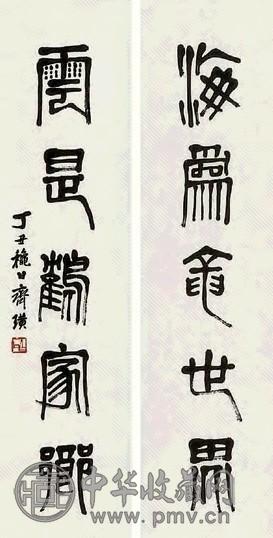 海為龍世界
雲是鶴家鄉
丁丑穐日齊璜
中华收藏网
www.pmv.cn